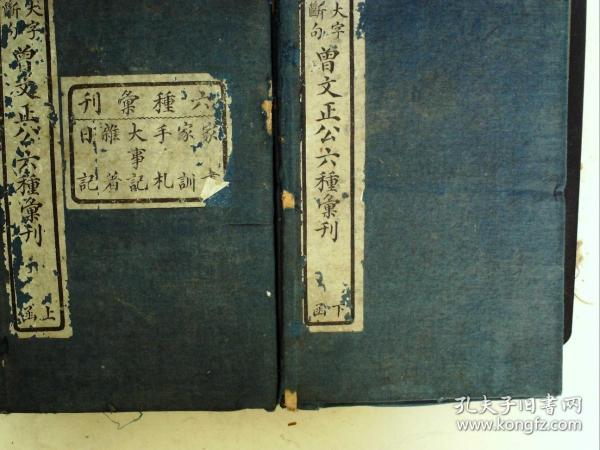 大字
断句
曾文正公六種彙刊
下函
六種彙刊
家書
家訓
手札
大事記
雜著
日記
大字
断句
曾文正公六種彙刊
上函
孔夫子旧书网
www.kongfz.com